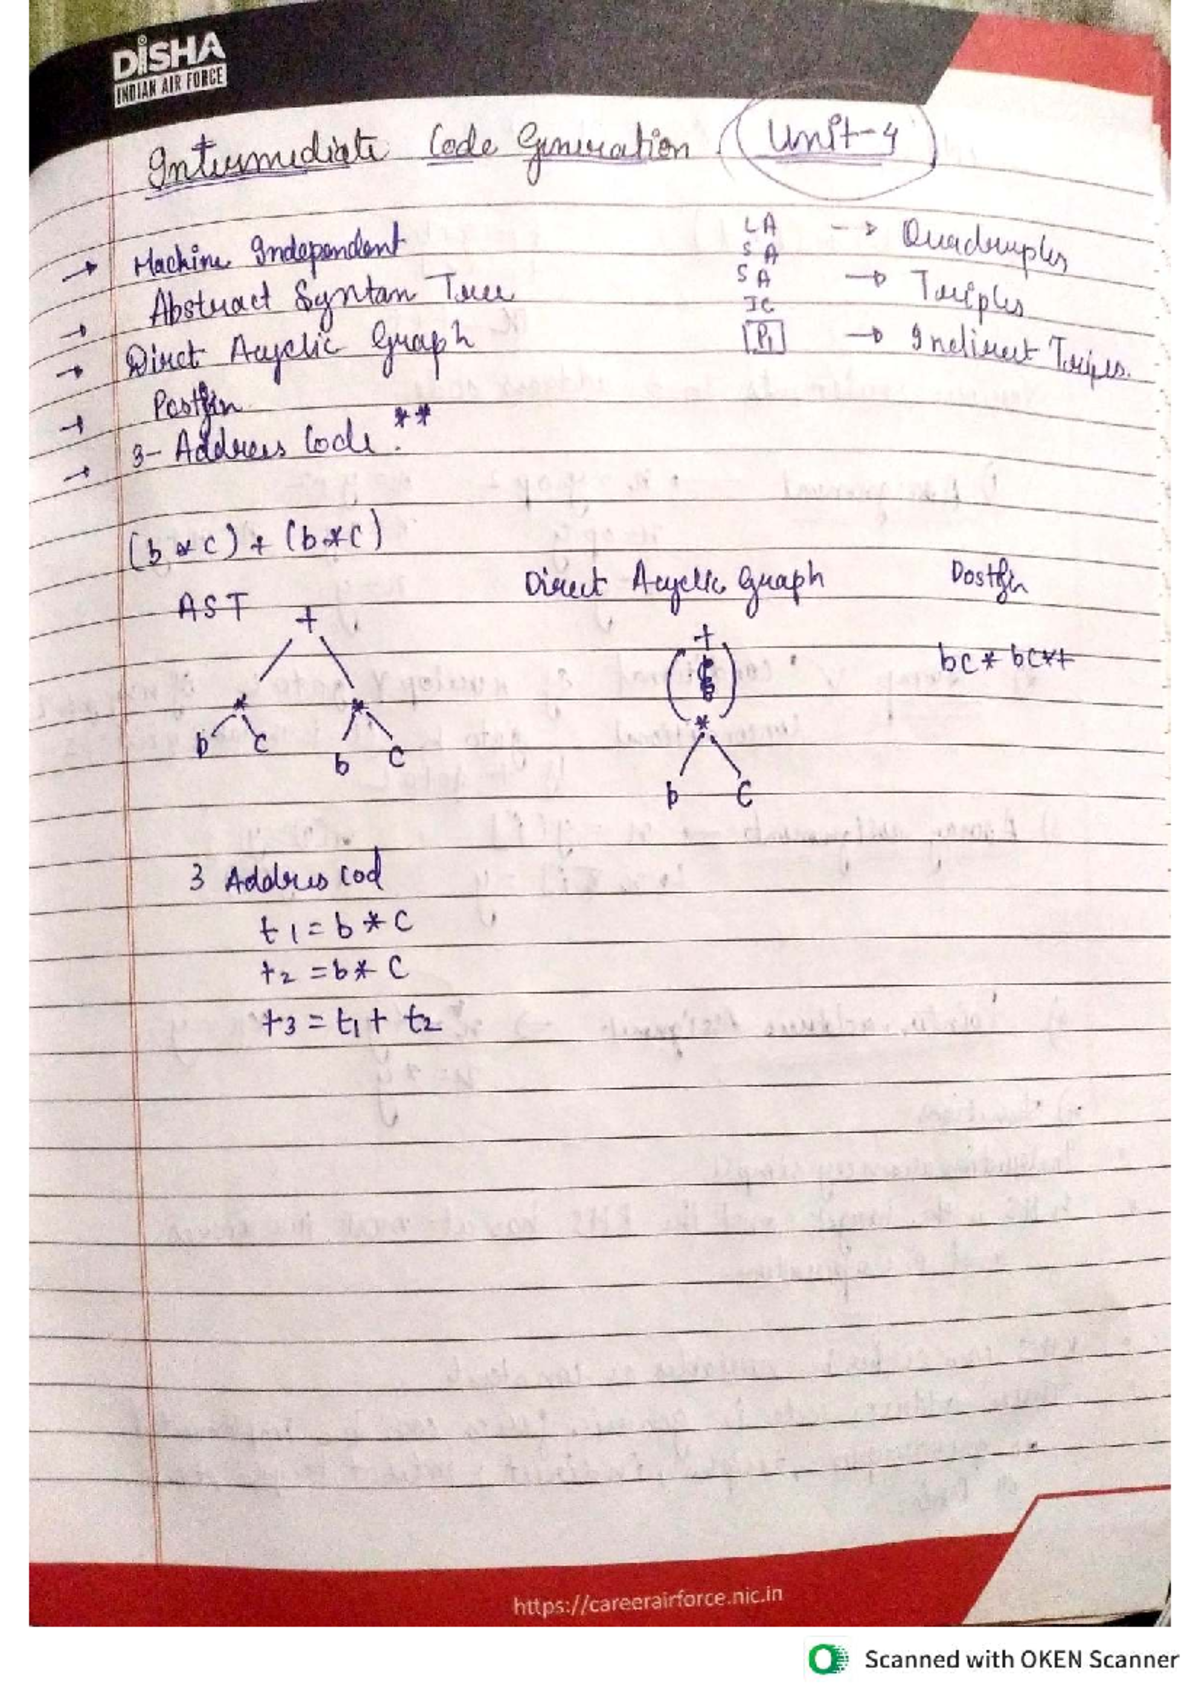 DISHA
INDIAN AIR FORCE
Intermediate Code Generation Unit-4
→ Machine Independent
→ Abstract Syntan Tree
→ Direct Acyclic Graph
→ Postfin
→ 3- Address Code. **
LA --> Quadruples
SA
SA → Triples
IC
P1 → Indirect Triples.
(b * c) + (b * c)
AST
+
* *
b c b c
Direct Acyclic Graph
+
*
b c
Postfin
bc* bc*+
3 Addres Cod
t1 = b * c
t2 = b * c
t3 = t1 + t2
https://careerairforce.nic.in
Scanned with OKEN Scanner